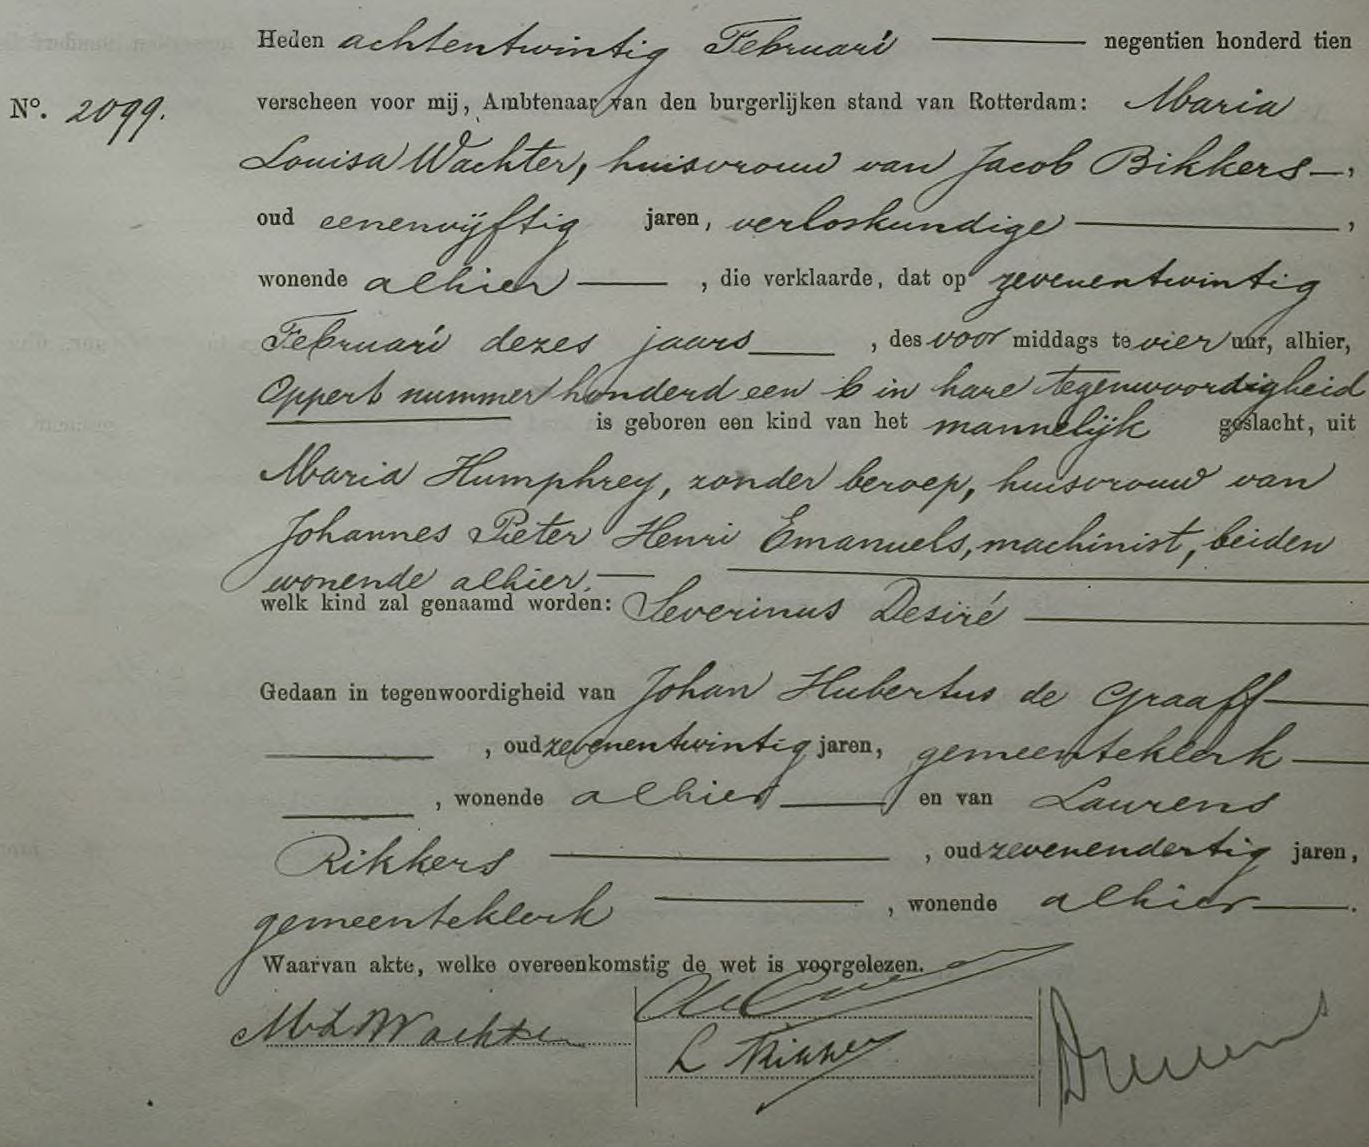 Heden achtentwintig Februari negentien honderd tien
No. 2099.
verscheen voor mij, Ambtenaar van den burgerlijken stand van Rotterdam: Maria
Louisa Wachter, huisvrouw van Jacob Bikkers,
oud eenenvijftig jaren, verloskundige,
wonende alhier, die verklaarde, dat op zevenentwintig
Februari dezes jaars, des voor middags te vier uur, alhier,
Oppert nummer honderd een b in hare tegenwoordigheid
is geboren een kind van het mannelijk geslacht, uit
Maria Humphrey, zonder beroep, huisvrouw van
Johannes Pieter Henri Emanuels, machinist, beiden
wonende alhier.
welk kind zal genaamd worden: Severinus Desiré
Gedaan in tegenwoordigheid van Johan Hubertus de Graaff
, oud zevenentwintig jaren, gemeenteklerk
, wonende alhier en van Laurens
Rikkers, oud zevenendertig jaren,
gemeenteklerk, wonende alhier.
Waarvan akte, welke overeenkomstig de wet is voorgelezen.
M L Wachter
L Rikkers